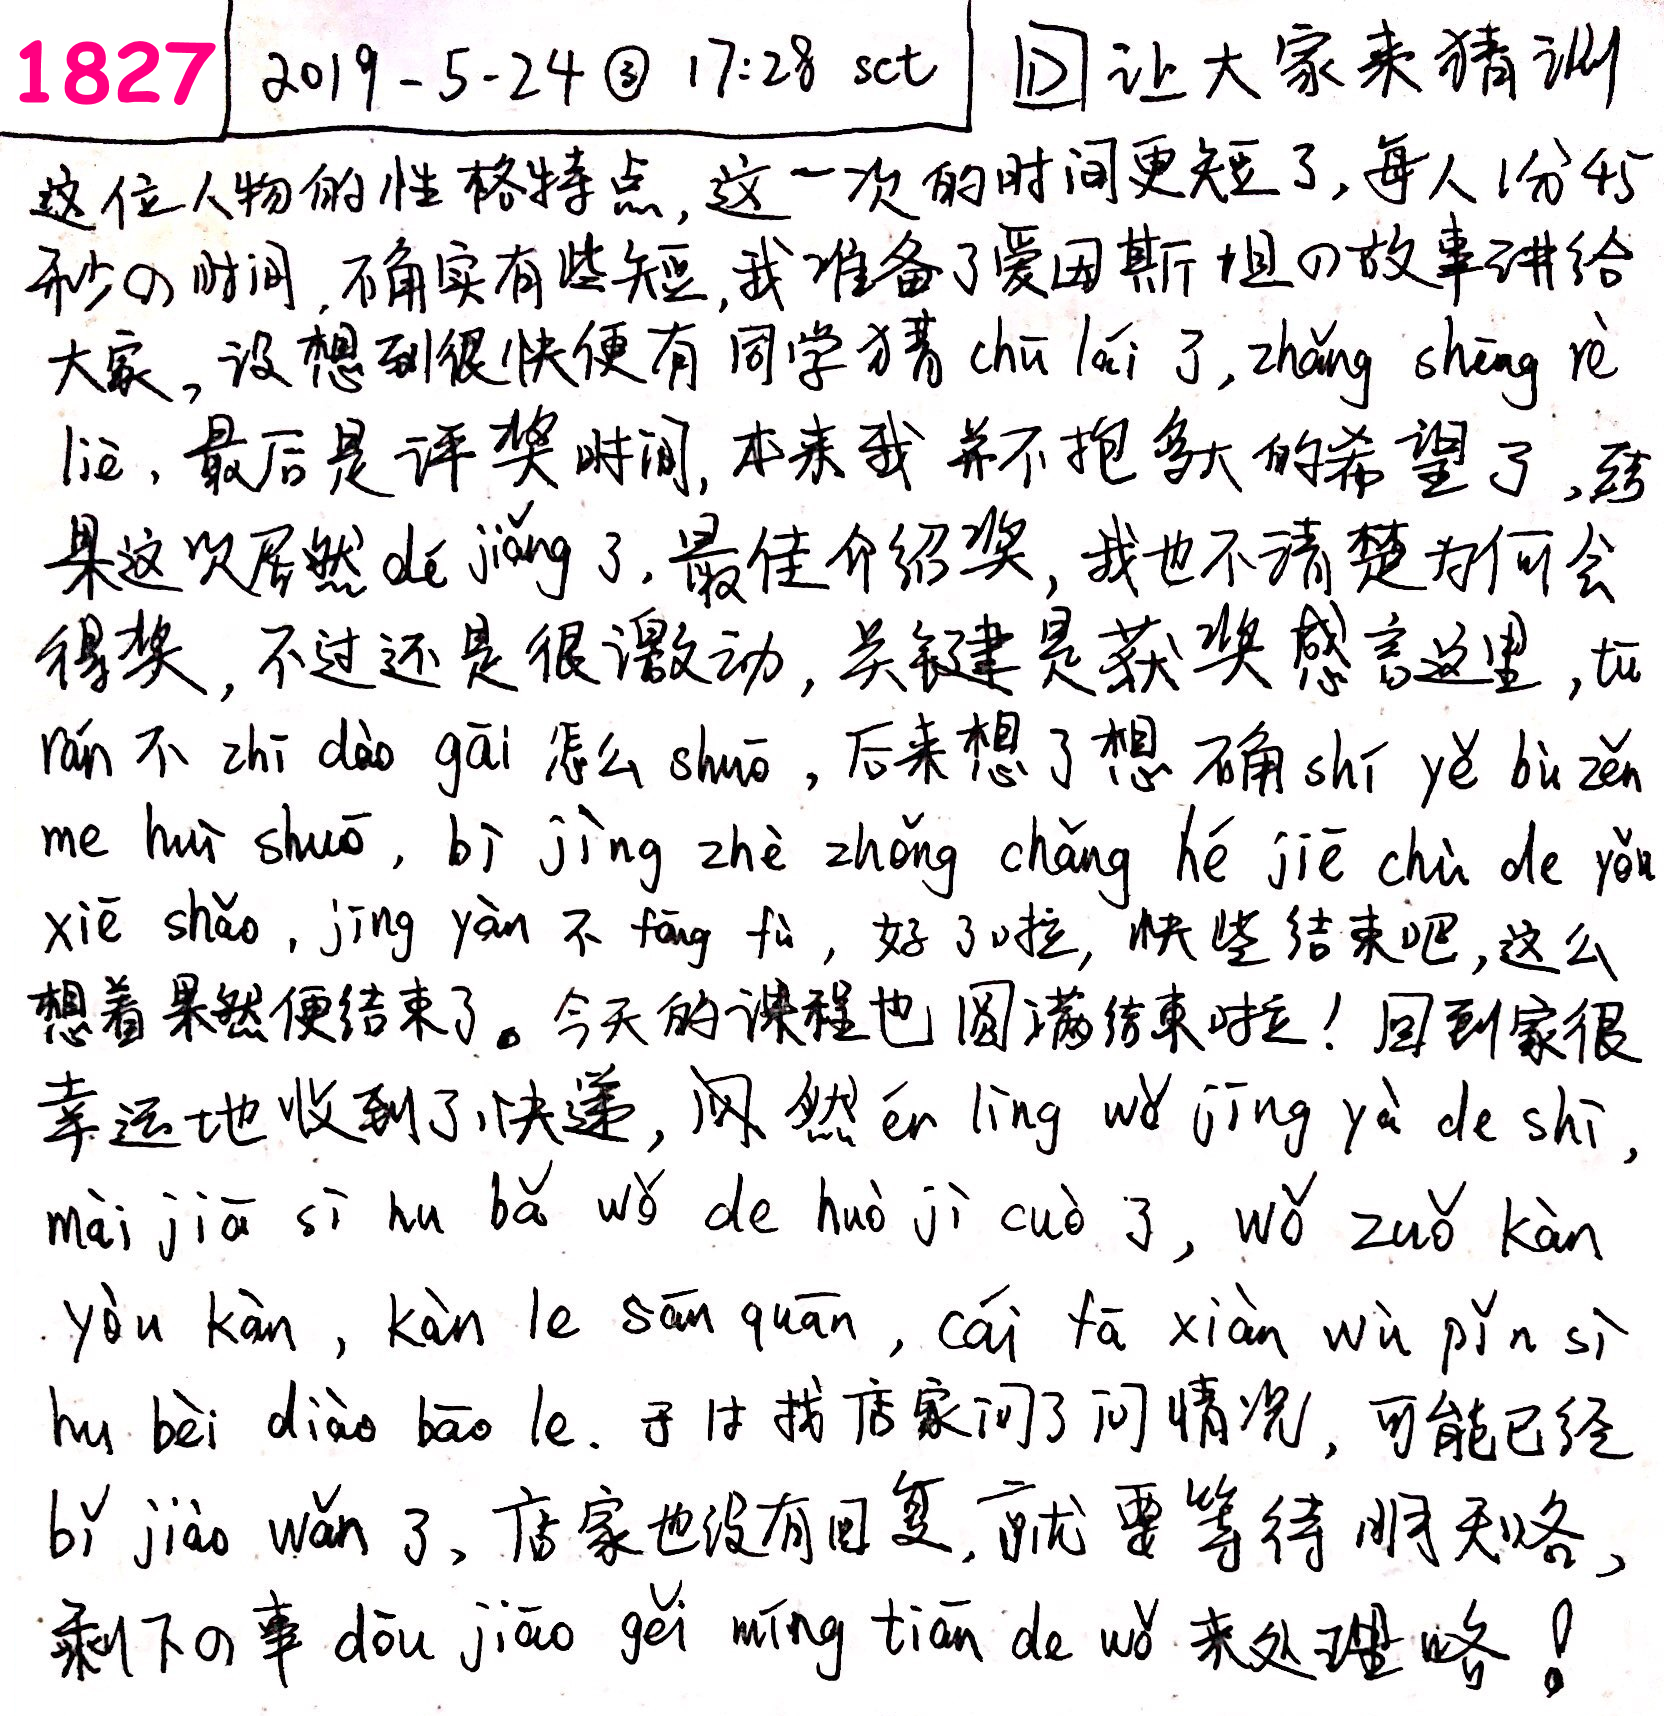 1827 2019-5-24 ③ 17:28 sct 让大家来猜训
这位人物的性格特点,这一次的时间更短了,每人1分45
秒の时间,确实有些短,我准备了爱因斯坦の故事讲给
大家。没想到很快便有同学猜 chū lái 了, zhǎng shēng rè
liè, 最后是评奖时间,本来我并不抱多大的希望了,结
果这次居然 dé jiǎng 了,最佳介绍奖,我也不清楚为何会
得奖,不过还是很激动,关键是获奖感言这里, tū
rán 不 zhī dào gāi 怎么 shuō ,后来想了想确 shí yě bù zěn
me huì shuō, bì jìng zhè zhǒng chǎng hé jiē chù de yǒu
xiē shǎo, jīng yàn 不 fēng fù, 好了啦,快些结束吧,这么
想着果然便结束了。今天的课程也圆满结束啦!回到家很
幸运地收到了快递, 然 ér lìng wǒ jīng yà de shì,
mài jiā sì hu bǎ wǒ de huò jì cuò 了, wǒ zuǒ kàn
yòu kàn, kàn le sān quān, cái fā xiàn wù pǐn sì
hu bèi diào bāo le. 于是找店家问了问情况,可能已经
bǐ jiào wǎn 了、店家也没有回复,就要等待明天咯,
剩下の事 dōu jiāo gěi míng tiān de wǒ 来处理咯!